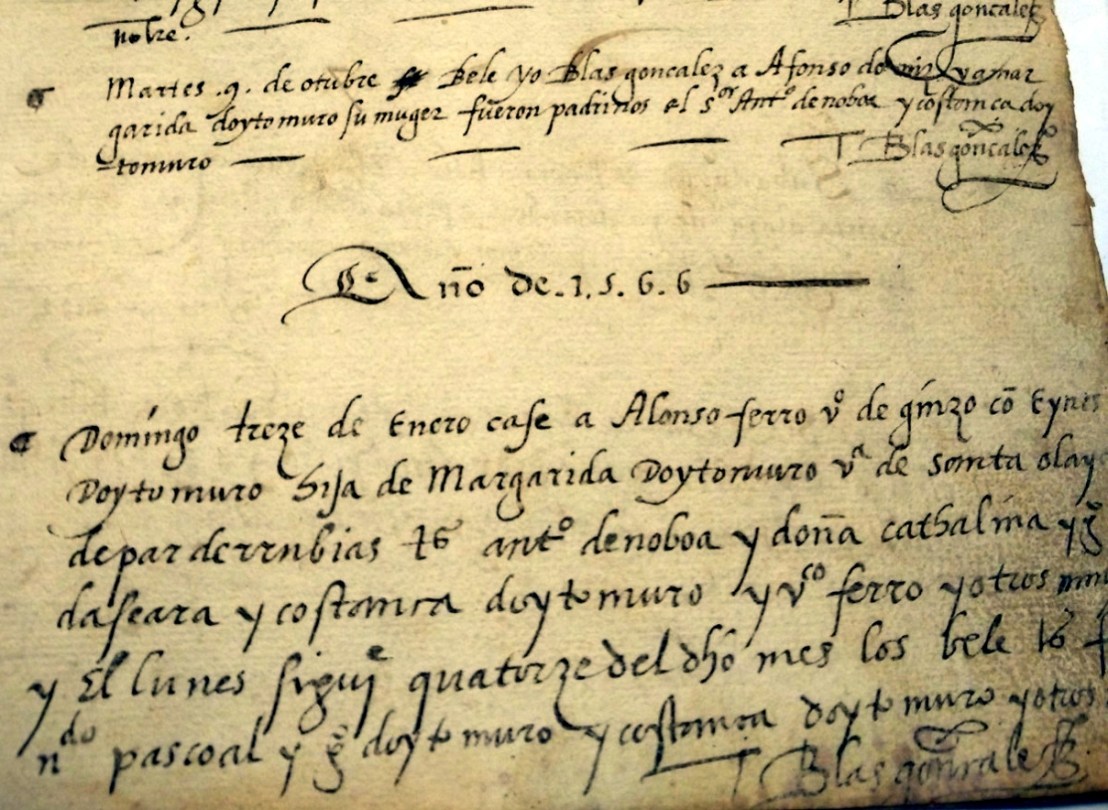 nobre. Blas gonçalez
Martes .9. de otubre Bele yo Blas gonçalez a Afonso do ya mar
garida doytomuro su muger fueron padrinos el s.or Ant.o de noboa y costança doy
tomuro T Blas gonçalez
Año de .1.5.6.6
Domingo treze de Enero case a Alonso ferro v.o de ginzo cõ Eynes
Doytomuro hija de Margarida Doytomuro v.a de santa olay
de parderrubias t.o ant.o de noboa y doña cathalina y g.o
da seara y costança doytomuro y v.co ferro y otros
y El lunes sigui.e quatorze del dho mes los bele t.o f
n.do pascoal y g.o doytomuro y costança doytomuro y otros
T Blas gonçalez